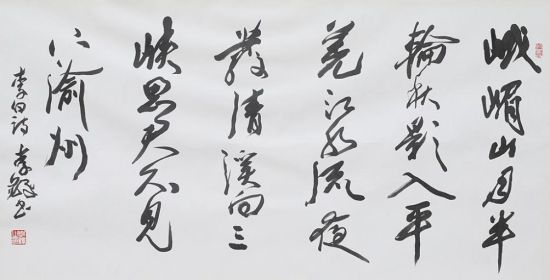 峨嵋山月半
輪秋影入平
羌江水流夜
發清溪向三
峡思君不見
下渝州
李白詩 李鐸书